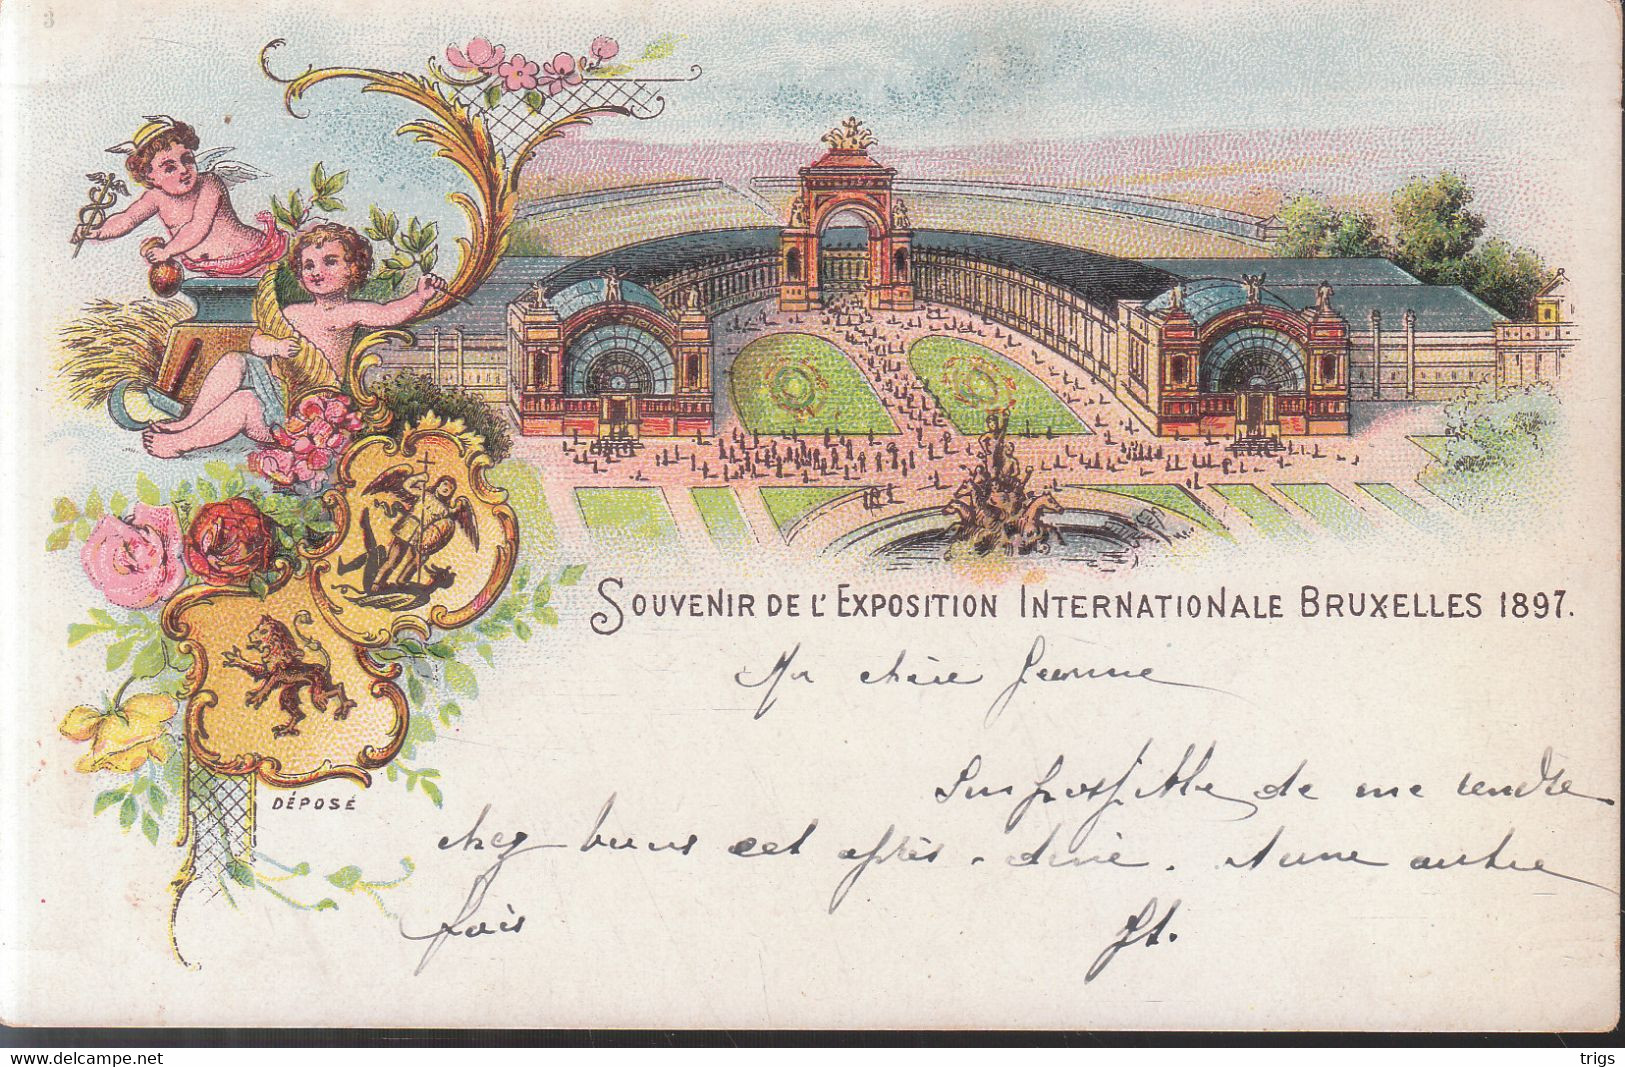 3
SOUVENIR DE L'EXPOSITION INTERNATIONALE BRUXELLES 1897.
Ma chère Jeanne
Impossible de me rendre
chez vous cet après-dîné. A une autre
fois
Jt.
DÉPOSÉ
https://www.delcampe.net
trigs